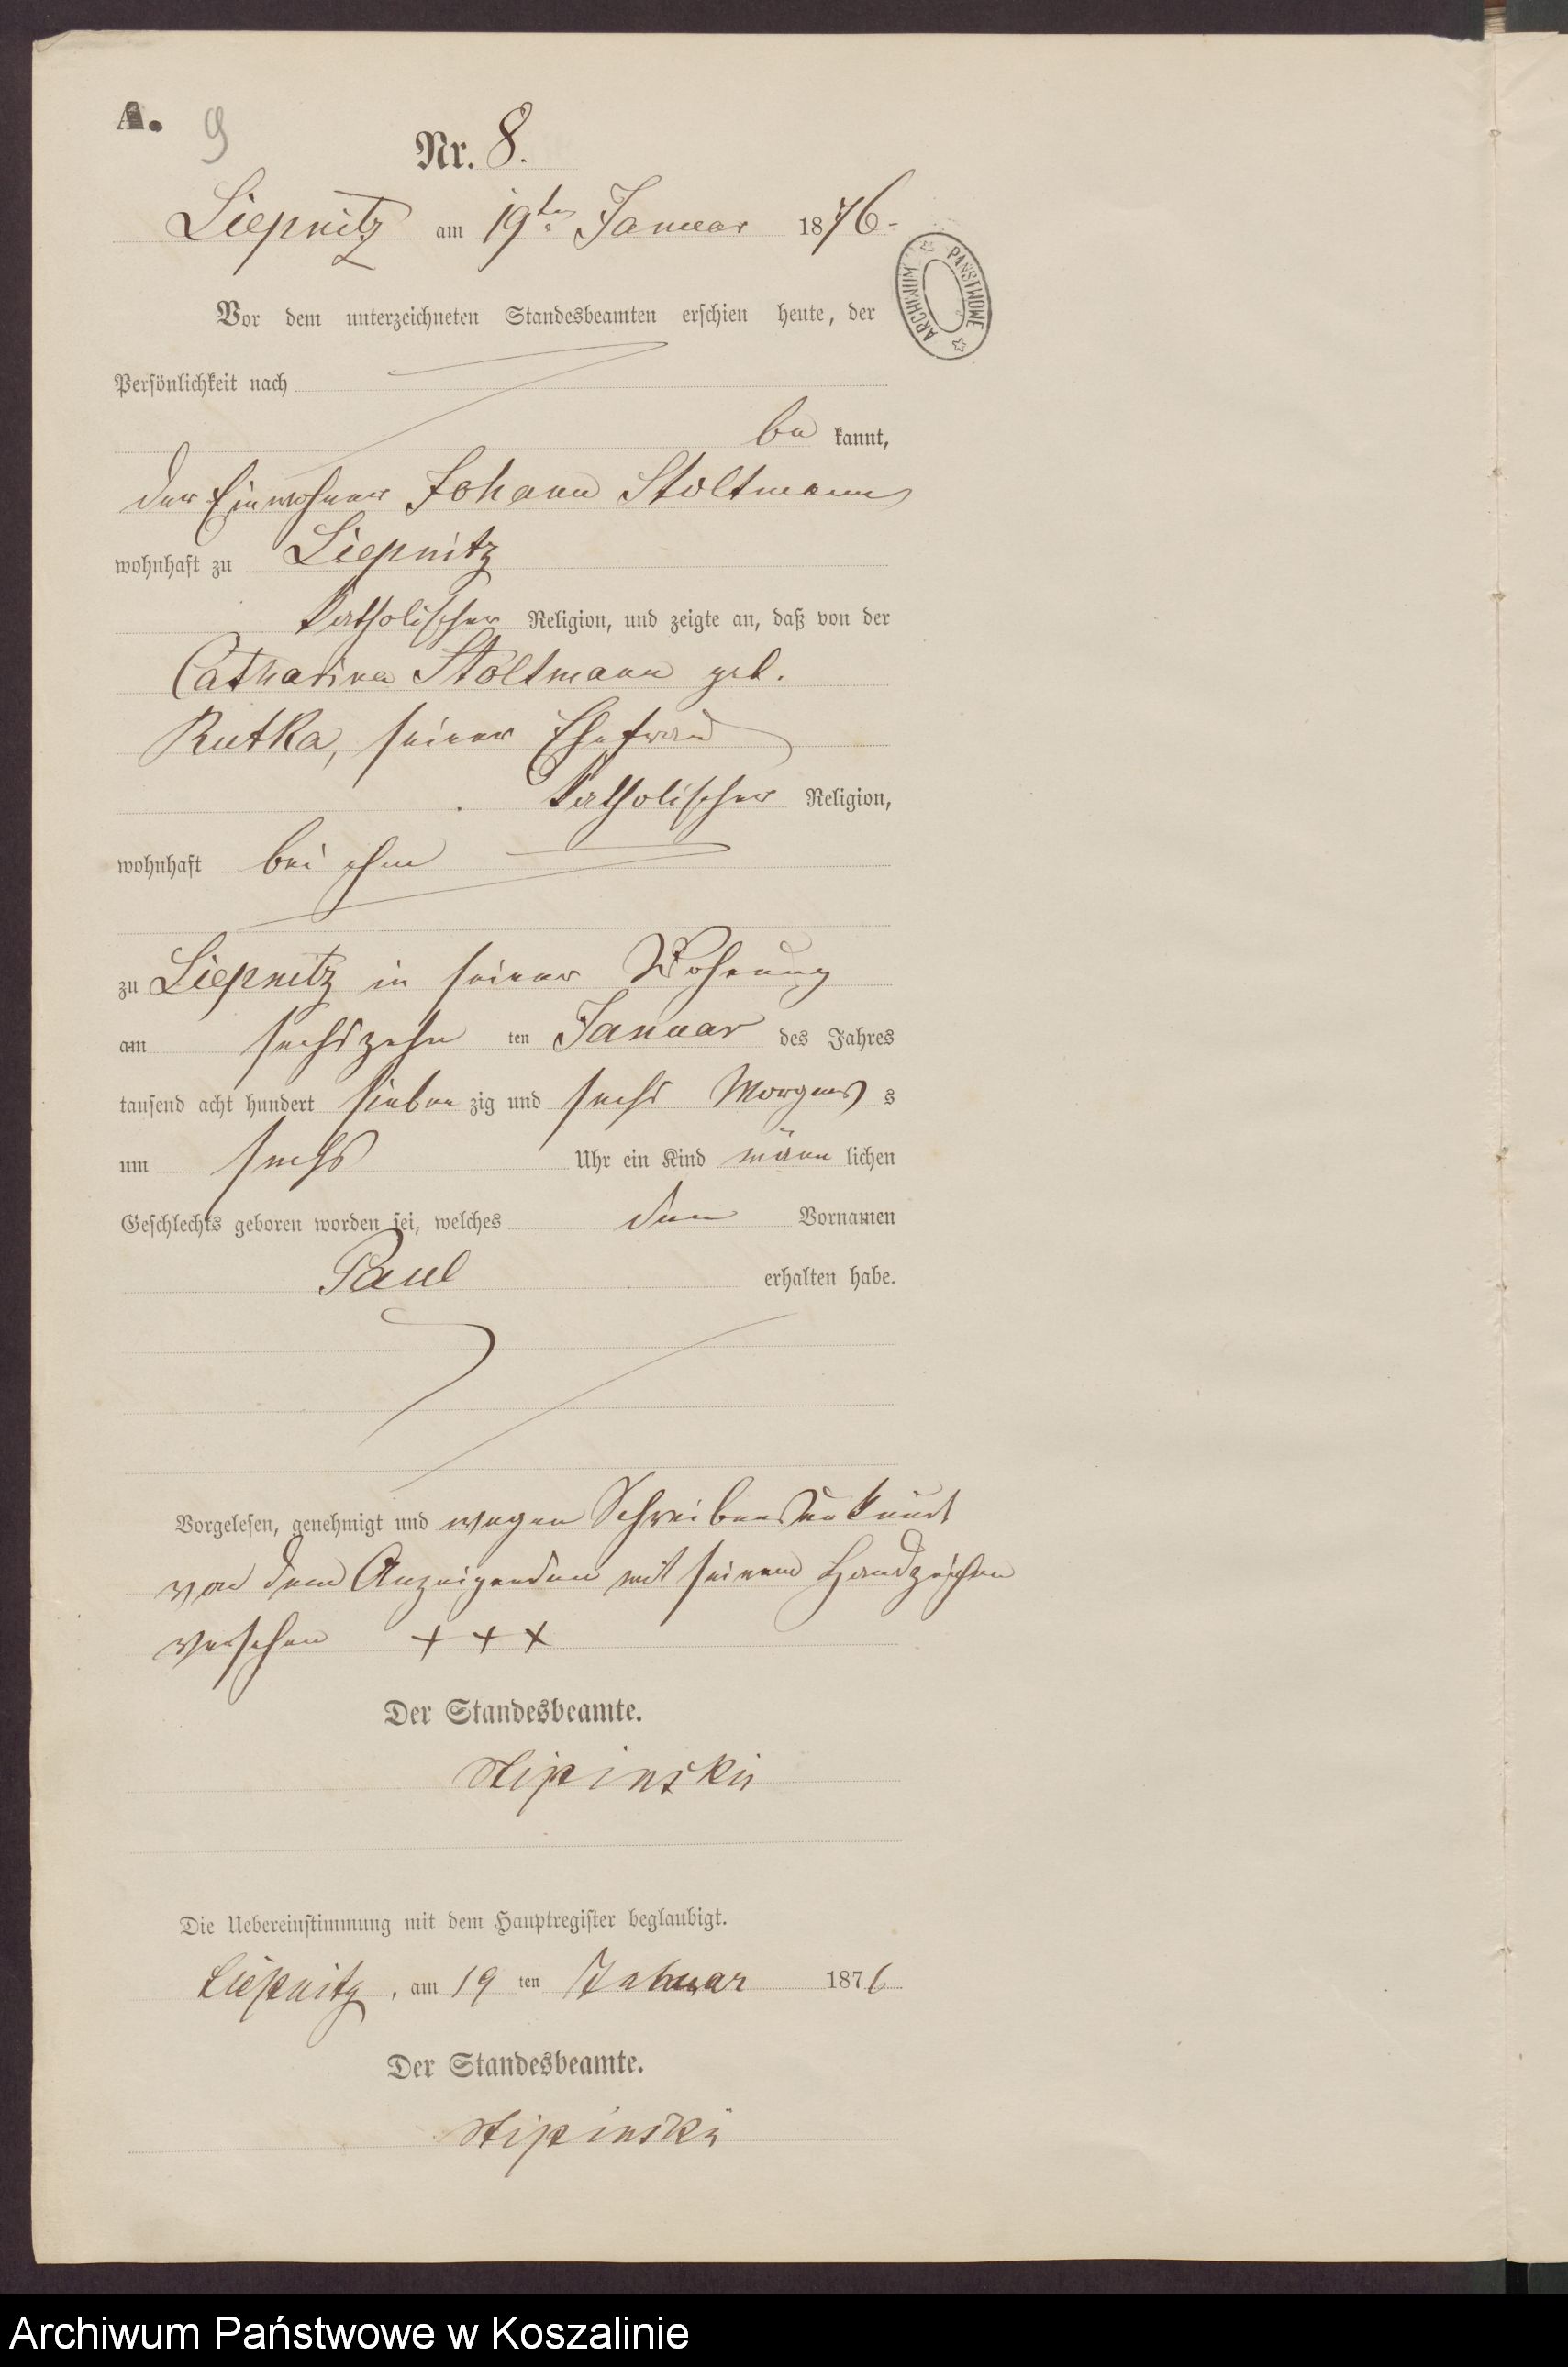 A. 9
Nr. 8.
Liepnitz am 19ten Januar 1876.
ARCHIWUM PAŃSTWOWE
Vor dem unterzeichneten Standesbeamten erschien heute, der
Persönlichkeit nach
be kannt,
der Einwohner Johann Stoltmann
wohnhaft zu Liepnitz
katholischer Religion, und zeigte an, daß von der
Catharina Stoltmann geb.
Rutka, seiner Ehefrau
katholischer Religion,
wohnhaft bei ihm
zu Liepnitz in seiner Wohnung
am sechszehn ten Januar des Jahres
tausend acht hundert sieben zig und sechs Morgens s
um sechs Uhr ein Kind männ lichen
Geschlechts geboren worden sei, welches den Vornamen
Paul erhalten habe.
Vorgelesen, genehmigt und wegen Schreibensunkunde
von dem Anzeigenden mit seinem Handzeichen
versehen + + +
Der Standesbeamte.
Die Uebereinstimmung mit dem Hauptregister beglaubigt.
Liepnitz, am 19 ten Januar 1876
Der Standesbeamte.
Archiwum Państwowe w Koszalinie